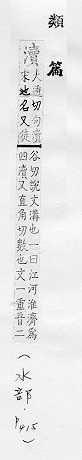 類篇
瀆
大透切句瀆
宋地名又徒
谷切說文溝也一曰江河淮濟爲
四瀆又直角切數也文一重音二
(水部.P415)